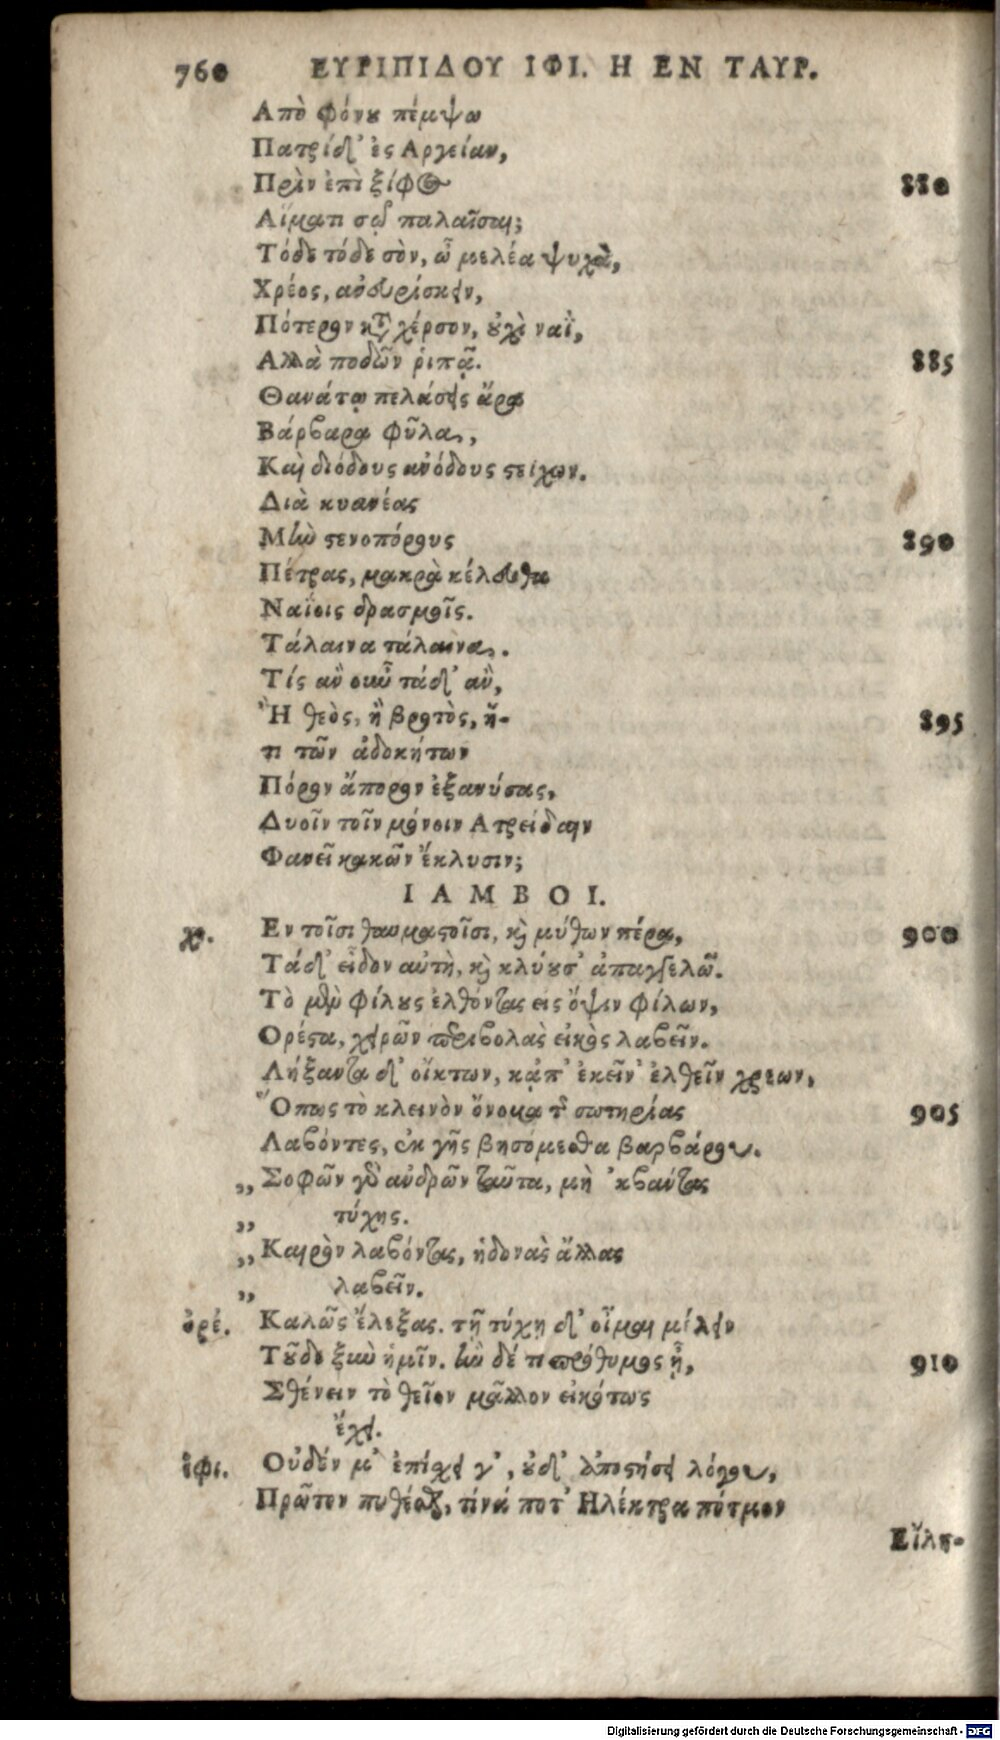 760 ΕΥΡΙΠΙΔΟΥ ΙΦΙ. Η ΕΝ ΤΑΥΡ.
Απὸ φόνου πέμψω
Πατρίδ' ἐς Αργείαν,
Πρὶν ἐπὶ ξίφος 880
Αἵματι σῷ παλαῖσαι;
Τόδε τόδε σὸν, ὦ μελέα ψυχὰ,
Χρέος, ανευρίσκειν,
Πότερον κατὰ χέρσον, οὐχὶ ναῒ,
Αλλὰ ποδῶν ῥιπᾷ. 885
Θανάτῳ πελάσεις ἄρα
Βάρβαρα φῦλα,
Καὶ διόδους ανόδους στείχων.
Διὰ κυανέας
Μὴν στενοπόρους 890
Πέτρας, μακρὰ κέλευθα
Ναΐοις δρασμοῖς.
Τάλαινα τάλαινα.
Τίς ἂν οὖν τάδ' ἂν,
Ἢ θεὸς, ἢ βροτὸς, ἤ- 895
τι τῶν ἀδοκήτων
Πόρον ἄπορον ἐξανύσας,
Δυοῖν τοῖν μόνοιν Ατρείδαιν
Φανεῖ κακῶν ἔκλυσιν;
ΙΑΜΒΟΙ.
χο. Εν τοῖσι θαυμαστοῖσι, καὶ μύθων πέρα, 900
Τάδ' εἶδον αὐτὴ, καὶ κλύουσ' ἀπαγγελῶ.
Τὸ μὲν φίλους ἐλθόντας εἰς ὄψιν φίλων,
Ορέστα, χειρῶν περιβολὰς εἰκὸς λαβεῖν.
Λήξαντα δ' οἴκτων, κᾀπ' ἐκεῖν' ἐλθεῖν χρεων,
Ὅπως τὸ κλεινὸν ὄνομα τῆς σωτηρίας 905
Λαβόντες, ἐκ γῆς βησόμεσθα βαρβάρου.
„ Σοφῶν γὰρ ανδρῶν ταῦτα, μὴ 'κβαντας
„ τύχης.
„ Καιρὸν λαβόντας, ἡδονὰς ἄλλας
„ λαβεῖν.
ὀρέ. Καλῶς ἔλεξας. τῇ τύχῃ δ' οἶμαι μέλειν
Τοῦδε ξὺν ἡμῖν. ἢν δέ τι πρόθυμος ᾖ, 910
Σθένειν τὸ θεῖον μᾶλλον εἰκότως
ἔχει.
ἰφι. Οὐδέν μ' ἐπίσχει γ', οὐδ' ἀποστήσει λόγου,
Πρῶτον πυθέσθαι, τίνά ποτ' Ηλέκτρα πότμον
Εἴλη-
Digitalisierung gefördert durch die Deutsche Forschungsgemeinschaft - DFG